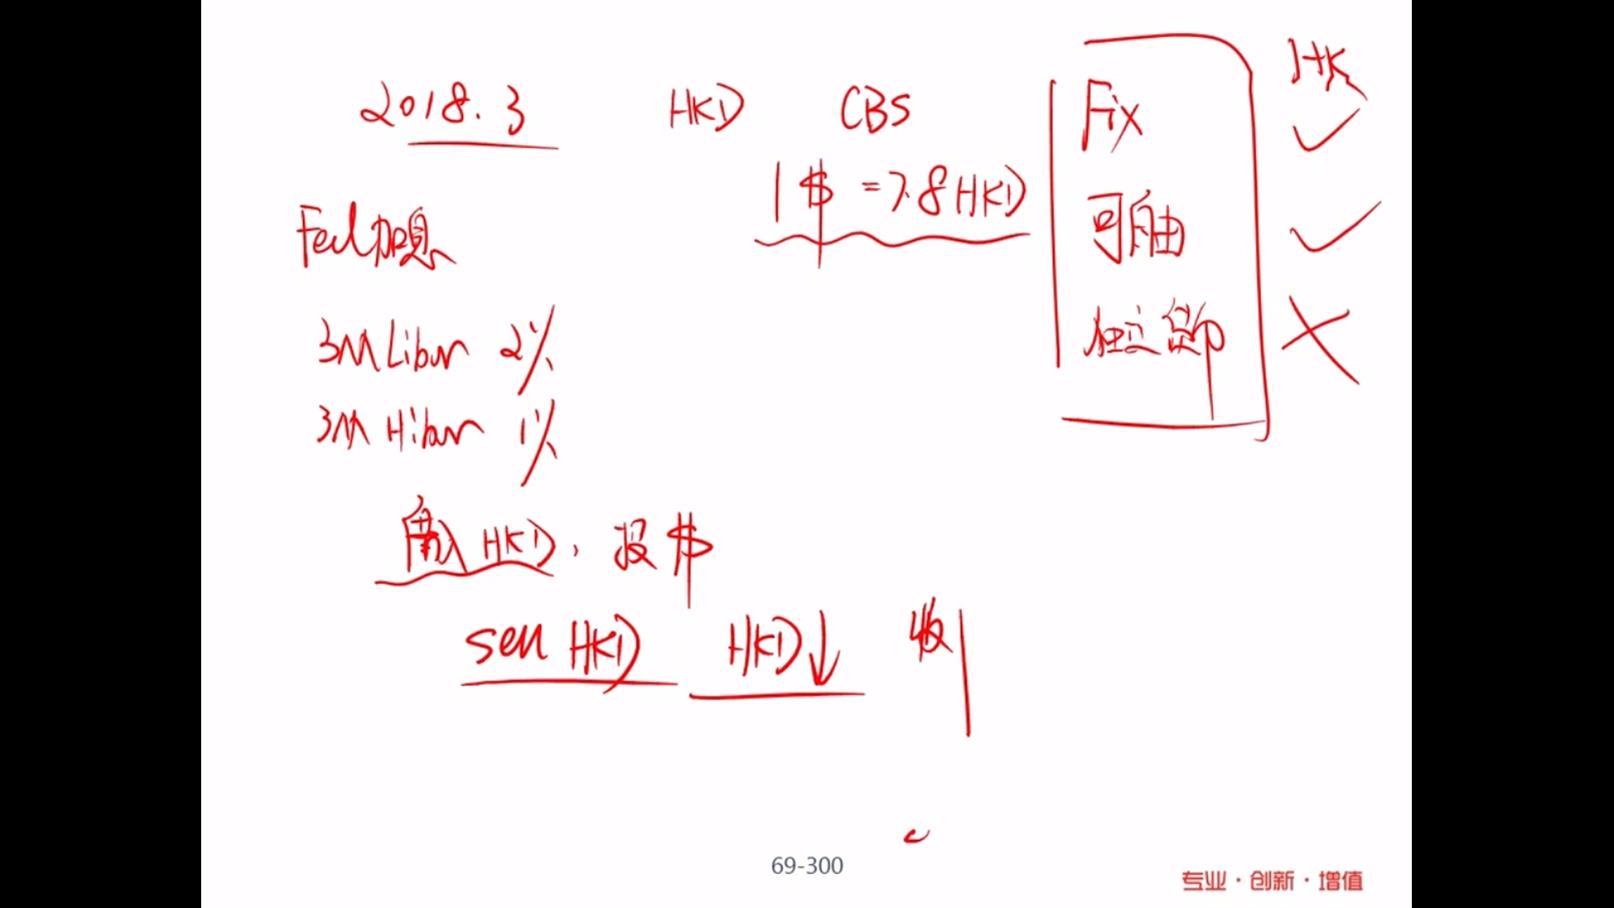 2018.3 HKD CBS
1$ = 7.8HKD
Fed加息
3M Libor 2%
3M Hibor 1%
HKD, 投$
sell HKD HKD↓ 收
HK
Fix ✓
可自由 ✓
独立货币 ✗
69-300
专业·创新·增值